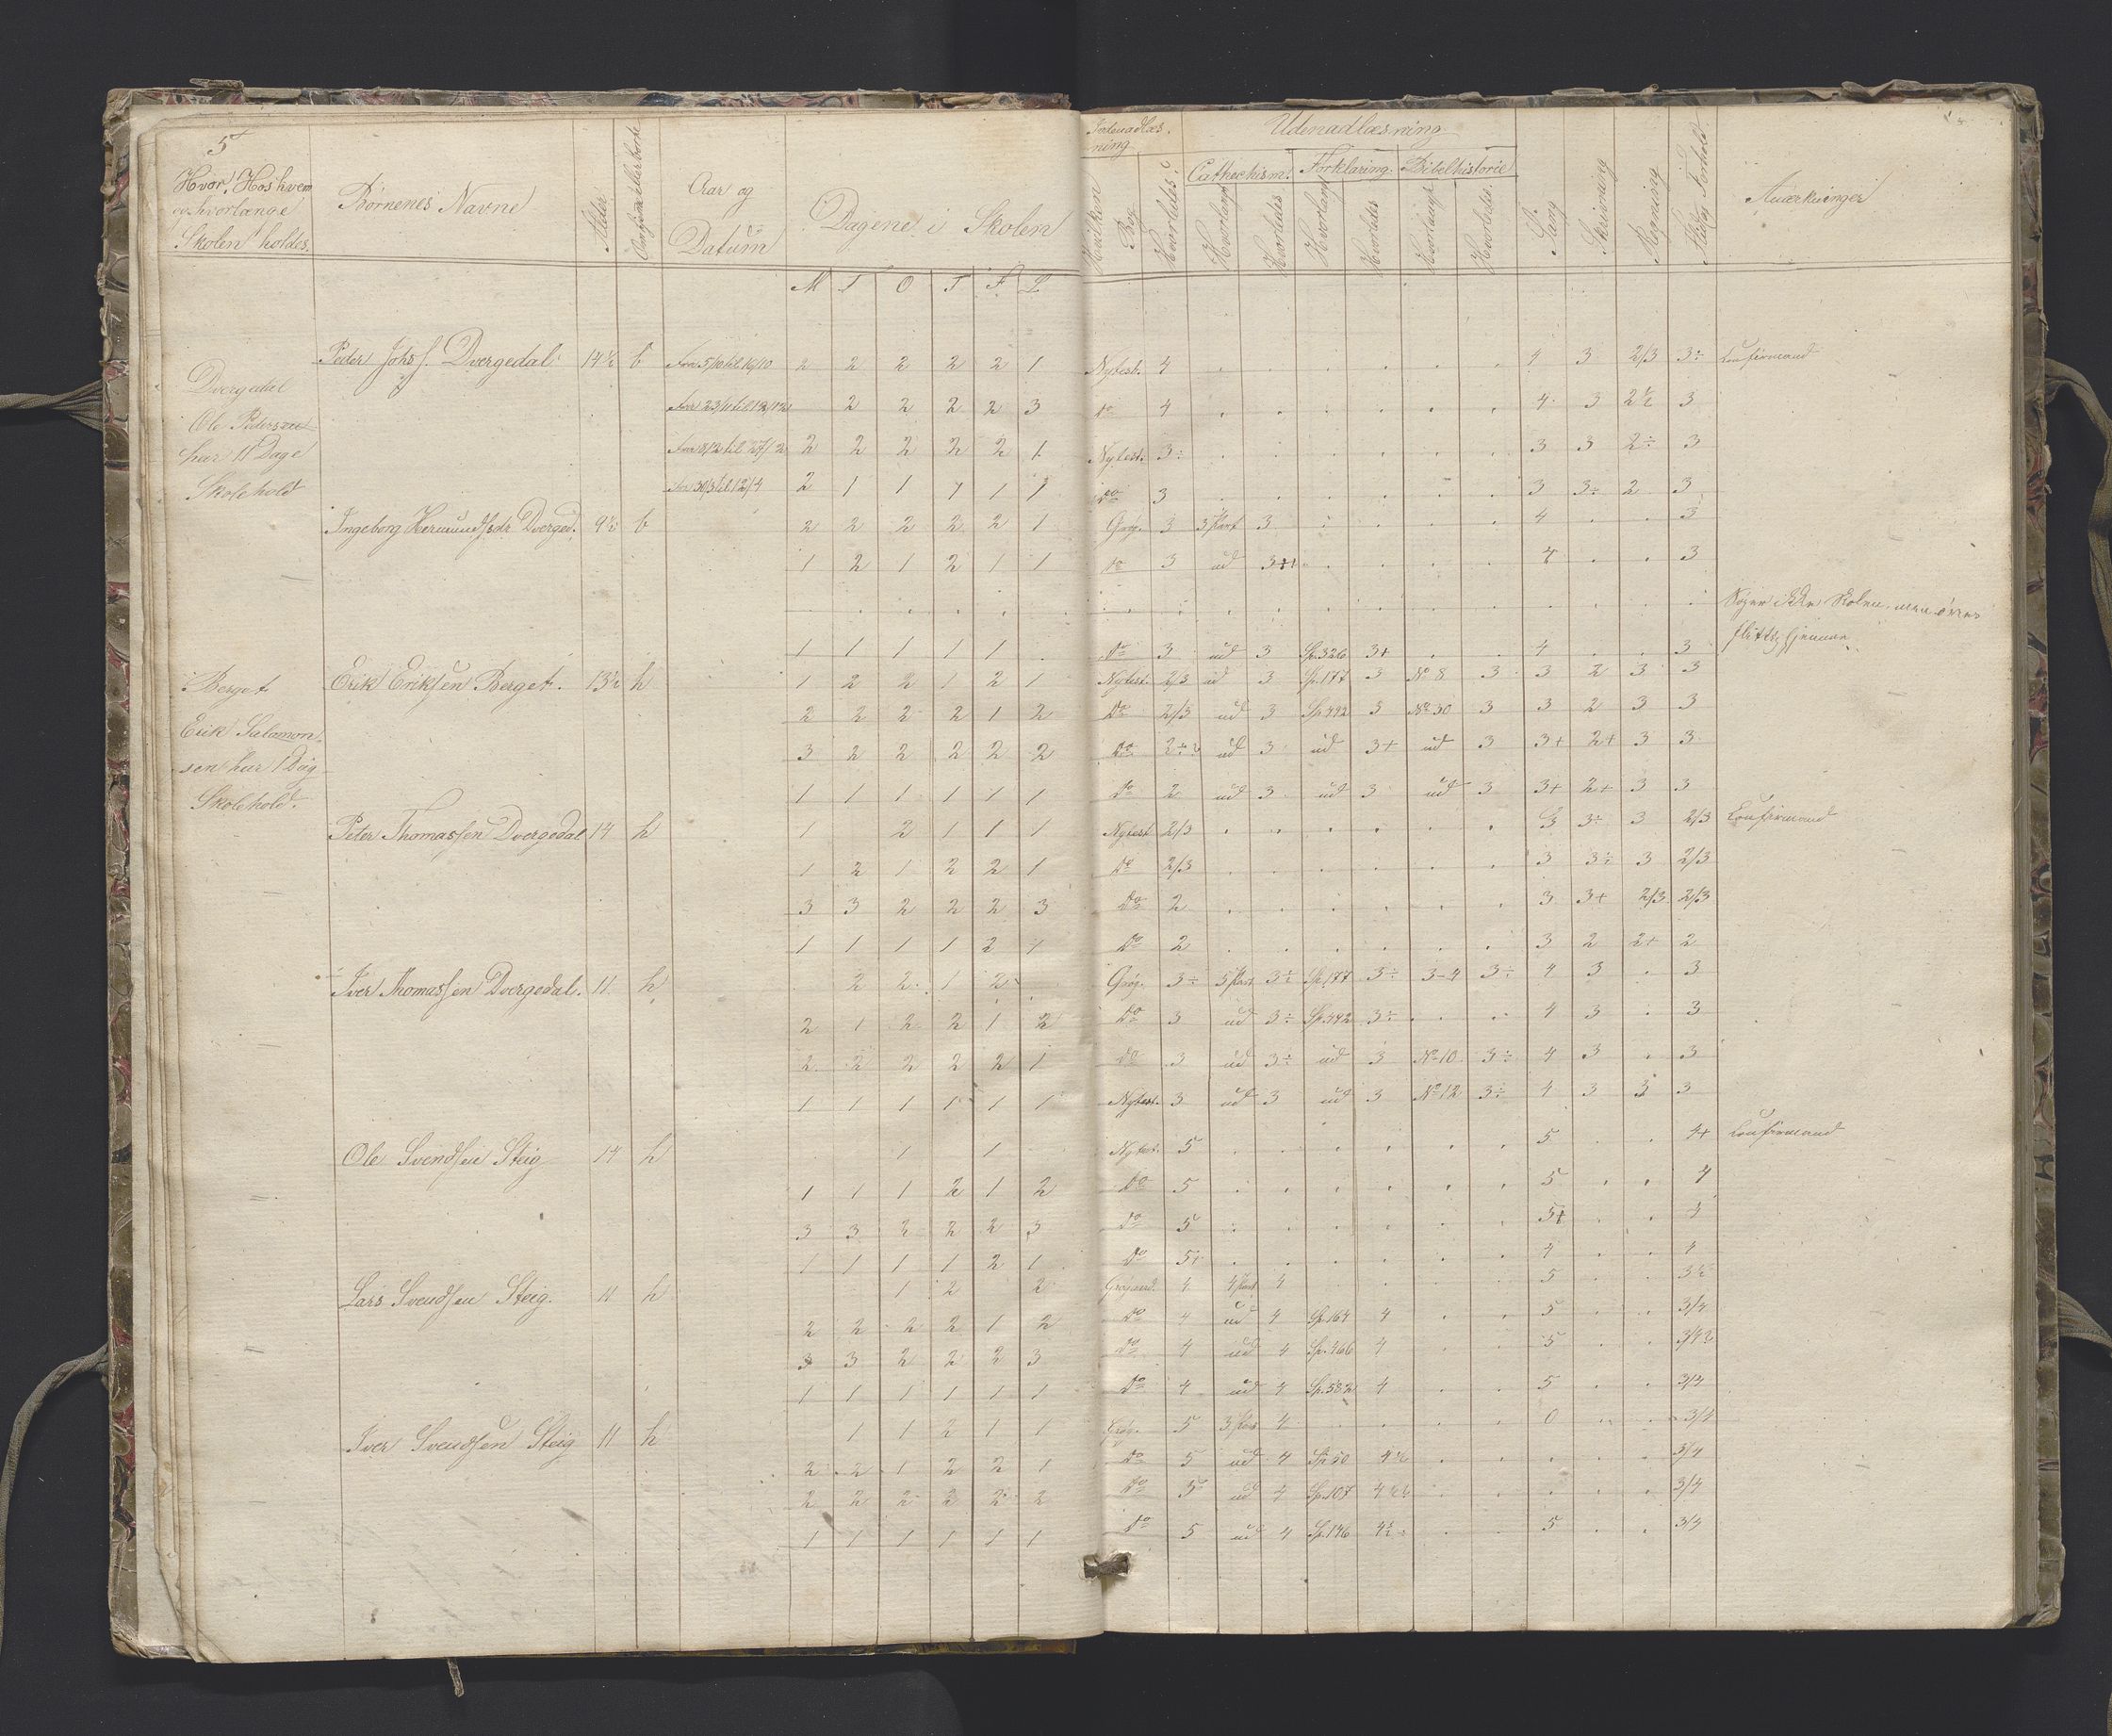 5
Hvor, Hos hvem
og hvorlænge
Skolen holdes.
Børnenes Navne
Alder
Aar og
Datum
Dagene i Skolen
Indenadlæs-
ning
Hvilken
Bog
Hvorledes
Udenadlæsning
Cathechism. Forklaring. Bibelhistorie
Hvorlangt Hvorledes Hvorlangt Hvorledes Hvorlangt Hvorledes
Sang
Skrivning
Regning
Flid og Forhold
Anmærkninger
M T O T F L
Peder Johs. Dvergedal 14½ b Fra 5/10 til 16/10 2 2 2 2 2 1 Nytest. 4 . . . . . . 4 3 2/3 3÷ Confirmand
Dvergedal
Ole Pedersen
har 11 Dage
Skolehold
Fra 23/11 til 12/12 2 2 2 2 3 do 4 . . . . . . 4 3 2½ 3
Fra 8/2 til 27/2 2 2 2 2 2 1 Nytest. 3÷ . . . . . . 3 3 2÷ 3
Fra 30/3 til 12/4 2 1 1 1 1 1 do 3 . . . . . . 3 3÷ 2 3
Ingeborg Hermundsdr Dverged. 9½ b 2 2 2 2 2 1 Grøg. 3 3 Part 3 . . . . 4 . . 3
1 2 1 2 1 1 do 3 ud 3++ . . . . 4 . . 3
Søger ikke Skolen, men øver
1 1 1 1 1 . do 3 ud 3 Sp. 326 3+ . . 4 . . 3
Berget
Erik Salomon-
sen har 1 Dag
Skolehold.
Erik Eriksen Berget. 13½ h 1 2 2 1 2 1 Nytest. 2/3 ud 3 Sp. 177 3 No 8 3 3 2 3 3
2 2 2 2 1 2 do 2/3 ud 3 Sp. 442 3 No 30 3 3 2 3 3
3 2 2 2 2 2 do 2÷ ud 3 ud 3+ ud 3 3+ 2+ 3 3
1 1 1 1 1 1 do 2 ud 3 ud 3 ud 3 3+ 2+ 3 3
Peter Thomassen Dvergedal 14 h 1 2 1 1 1 Nytest 2/3 . . . . . . 3 3÷ 3 2/3 Confirmand
1 2 1 2 2 1 do 2/3 . . . . . . 3 3÷ 3 2/3
3 3 2 2 2 3 do 2 . . . . . . 3 3+ 2/3 2/3
1 1 1 1 2 1 do 2 . . . . . . 3 2 2+ 2
Iver Thomassen Dvergedal. 11 h 2 2 1 2 Grøg. 3÷ 5 Part 3÷ Sp. 177 3÷ 3-4 3÷ 4 3 . 3
2 1 2 2 1 2 do 3 ud 3÷ Sp. 442 3÷ . . 4 3 . 3
2 2 2 2 2 1 do 3 ud 3÷ ud 3 No 10 3÷ 4 3 . 3
1 1 1 1 1 1 Nytest. 3 ud 3 ud 3 No 12 3÷ 4 3 3 3
Ole Svendsen Steig 14 h 1 1 Nytest. 5 . . . . . . 5 . . 4+ Confirmand
1 1 1 2 1 2 do 5 . . . . . . 5 . . 4
3 3 2 2 2 3 do 5 . . . . . . 5+ . . 4
1 1 1 1 2 1 do 5+ . . . . . . 4 . . 4
Lars Svendsen Steig. 11 h 1 2 2 4 4 Part 4 . . . . 5 . . 3½
2 2 2 2 1 2 do 4 ud 4 Sp. 164 4 . . 5 . . 3/4
3 3 2 2 2 3 do 4 ud 4 Sp. 466 4 . . 5 . . 3/4
1 1 1 1 1 1 do 4 ud 4 Sp. 582 4 . . 5 . . 3/4
Iver Svendsen Steig 11 h 1 1 2 1 1 Grøg. 5 3 Part 4 . . . . 0 . . 3/4
2 2 1 2 2 1 do 5 ud 4 Sp. 50 4½ . . . . . 3/4
2 2 2 2 2 2 do 5 ud 4 Sp. 107 4½ . . . . . 3/4
1 1 1 1 1 1 do 5 ud 4 Sp. 146 4½ . . 5 . . 3/4